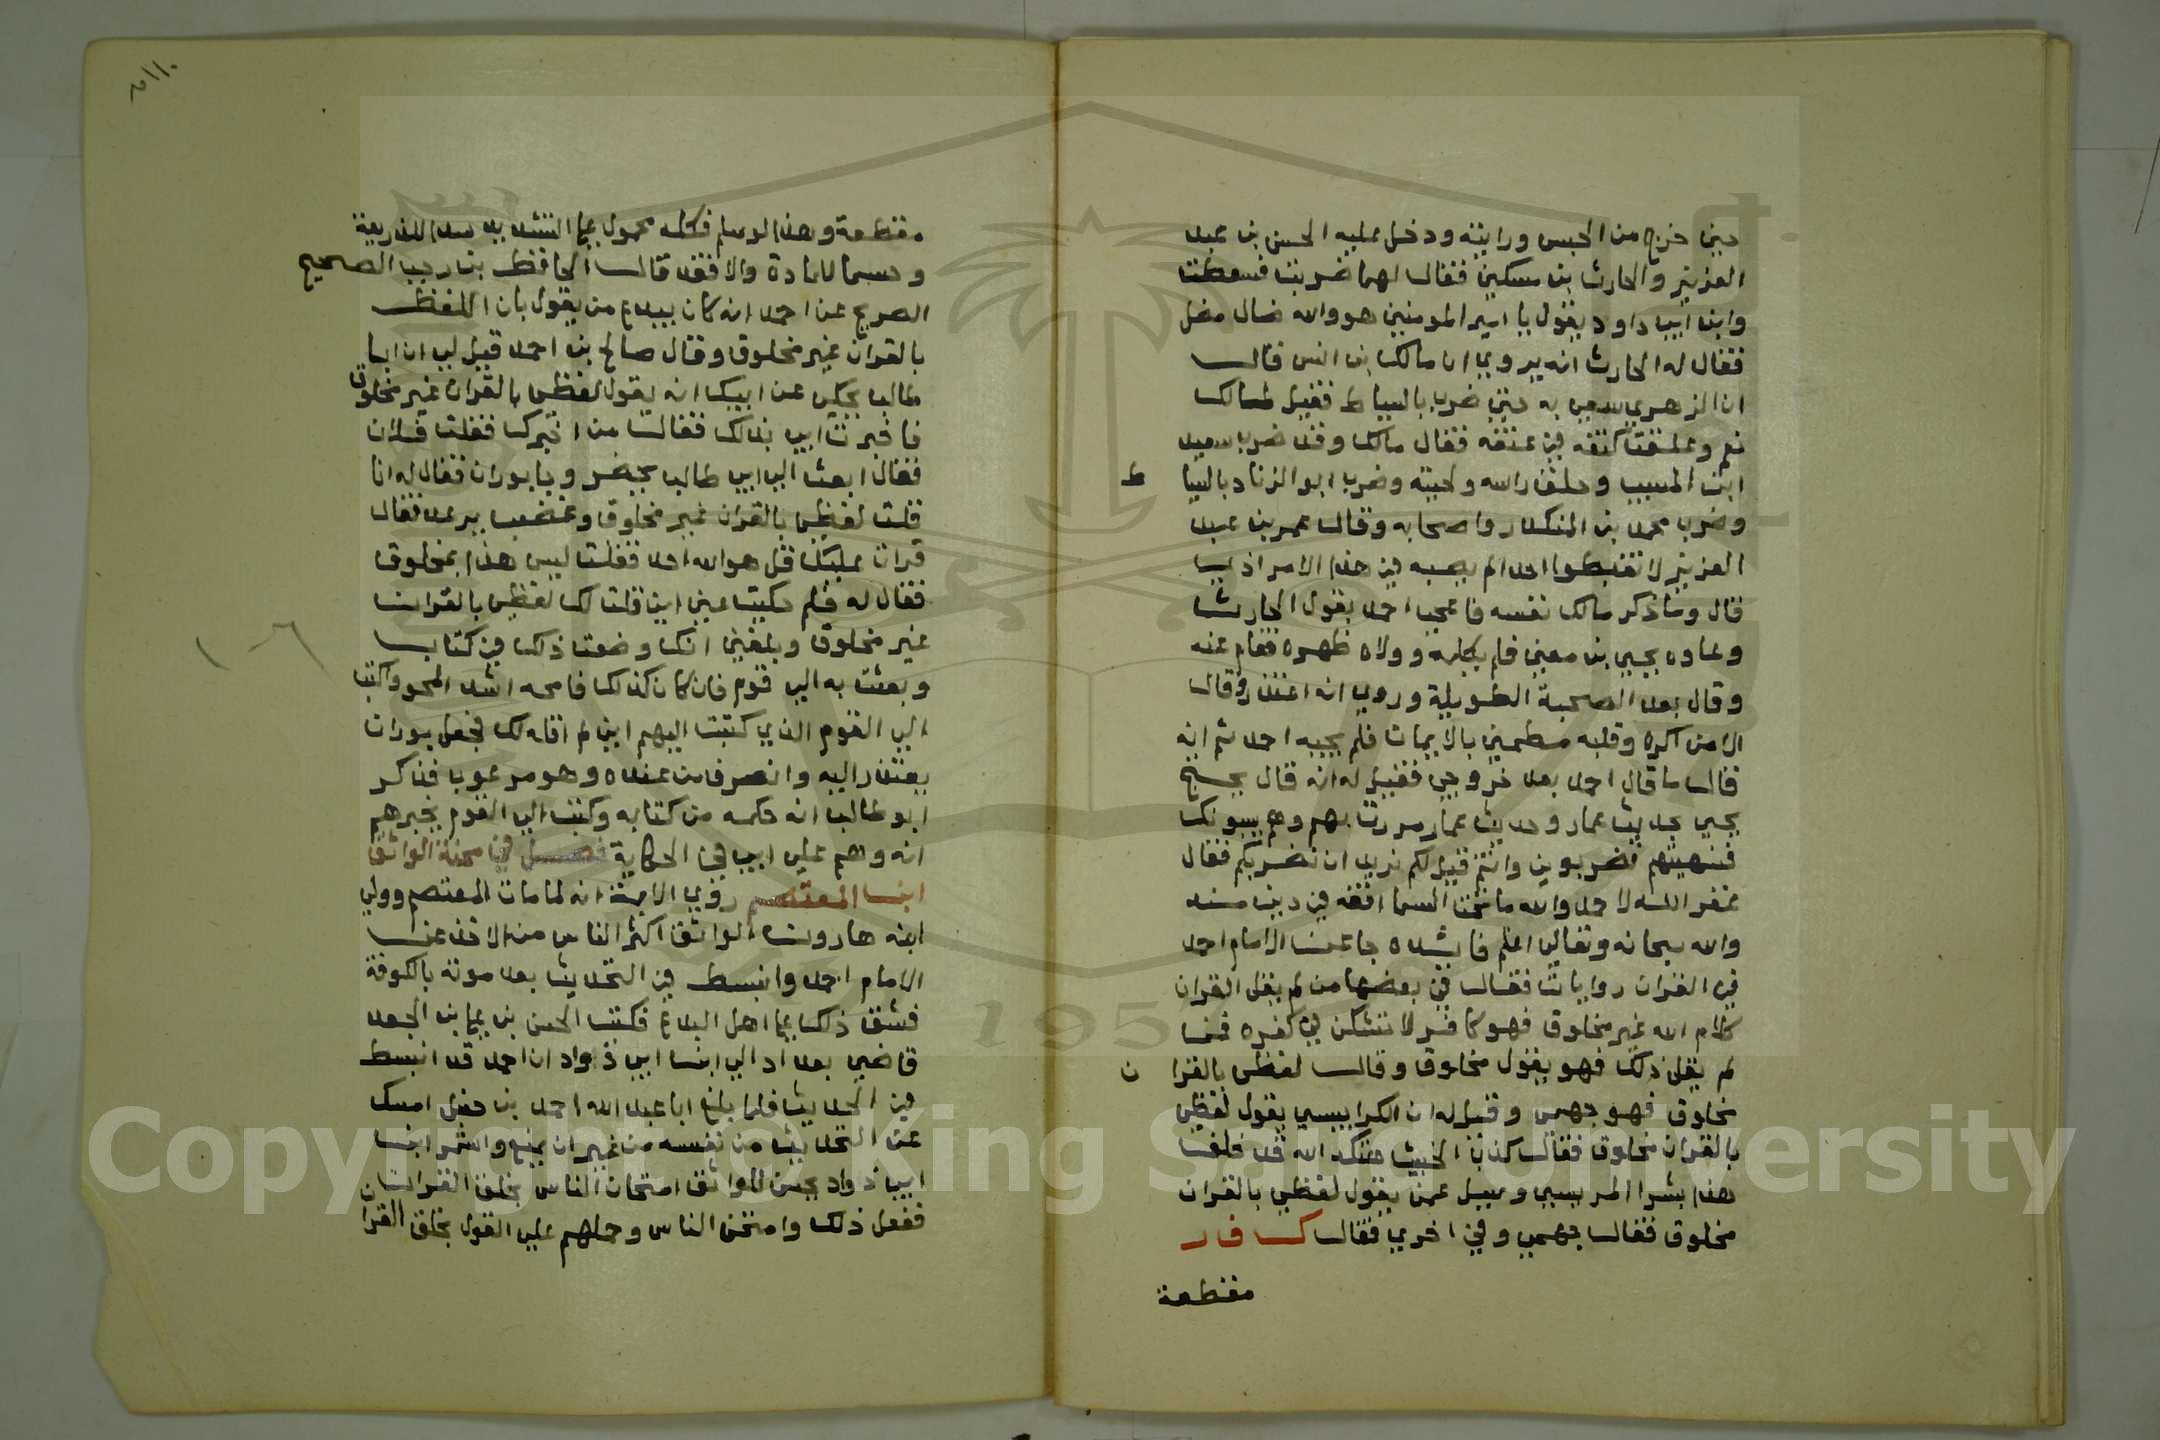 حين خرج من الحبس ورايته ودخل عليه الحسن بن عبد
العزيز والحارث بن مسكين فقال لهما ضربت فسقطت
وابن ابي داود يقول يا امير المومنين هو والله ضال مضل
فقال له الحارث انه يروي ان مالك بن انس قال
ان الزهري سعي به حتى ضرب بالسياط فقيل لمالك
نعم وعلقت كتفه في عنقه فقال مالك وقد ضرب سعيد
ابن المسيب وحلق راسه ولحيته وضرب ابو الزناد بالسيا ط
وضرب محمد بن المنكدر واصحابه وقال عمر بن عبد
العزيز لا تغبطوا احدا لم يصبه في هذا الامر اذي
قال وما ذكر مالك نفسه فاعجب احمد بقول الحارث
وعاده يحيي بن معين فلم يكلمه وولاه ظهره فقام عنه
وقال بعد الصحبة الطويلة وروي انه اعتذر وقال
الا من اكره وقلبه مطمين بالايمان فلم يجبه احمد ثم انه
قال ما قال احمد بعد خروجي فقيل له انه قال يحتج
يحيي بحديث عمار وحديث عمار مررت بهم وهم يسبونك
فنهيتهم فضربوني وانتم قيل لكم نريد ان نضربكم فقال
غفر الله لاحمد والله ما تحت السما افقه في دين منه
والله سبحانه وتعالي اعلم فايدة جا عن الامام احمد
في القران روايات فقال في بعضها من لم يقل القران
كلام الله غير مخلوق فهو كافر لا تشكن في كفره فمن
لم يقل ذلك فهو يقول مخلوق وقال لفظي بالقرا ن
مخلوق فهو جهمي وقيل له ان الكرابيسي يقول لفظي
بالقران مخلوق فقال كذب الخبيث هتكه الله قد خلف
هذا بشرا المريسي وسيل عمن يقول لفظي بالقران
مخلوق فقال جهمي وفي اخري فقال كافر
مقطعة
مقطعة وهذا لو سلم فكله محمول على التشديد سدا للذريعة
وحسما للمادة والا فقد قال الحافظ بن رجب الصحيح
الصريح عن احمد انه كان يبدع من يقول بان اللفظ
بالقران غير مخلوق وقال صالح بن احمد قيل لي ان ابا
طالب يحكي عن ابيك انه يقول لفظي بالقران غير مخلوق
فاخبرت ابي بذلك فقال من اخبرك فقلت فلان
فقال ابعث الي ابي طالب يحضر وبابوران فقال له انا
قلت لفظي بالقران غير مخلوق وغضب يرعد فقال
قرات عليك قل هو الله احد فقلت ليس هذا بمخلوق
فقال له فلم حكيت عني اني قلت لك لفظي بالقران
غير مخلوق وبلغني انك وضعت ذلك في كتاب
وبعثت به الي قوم فان كان كذلك فامحه اشد المحو واكتب
الي القوم الذي كتبت اليهم اني لم اقله لك فجعل بوران
يعتذر اليه وانصرف من عنده وهو مرعوب فذكر
ابو طالب انه حكه من كتابه وكتب الي القوم يخبرهم
انه وهم علي ابي في الحكاية فصل في محنة الواثق
ابن المعتصم روي الايمة انه لما مات المعتصم وولي
ابنه هارون الواثق اكثر الناس من الاخذ عن
الامام احمد وانبسط في التحديث بعد موته بالكوفة
فشق ذلك على اهل البدع فكتب الحسن بن علي بن الجعد
قاضي بغداد الي ابن ابي ذواد ان احمد قد انبسط
في الحديث فلما بلغ ابا عبد الله احمد بن حنبل امسك
عن التحديث من نفسه من غير ان يمنع واستمر ابن
ابي ذواد يحسن للواثق امتحان الناس بخلق القران
ففعل ذلك وامتحن الناس وحملهم علي القول بخلق القران